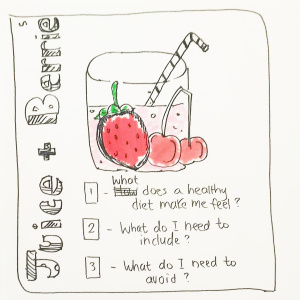 Juice + Berrie
s
1 - What does a healthy
diet make me feel?
2 - What do I need to
include?
3 - What do I need to
avoid?